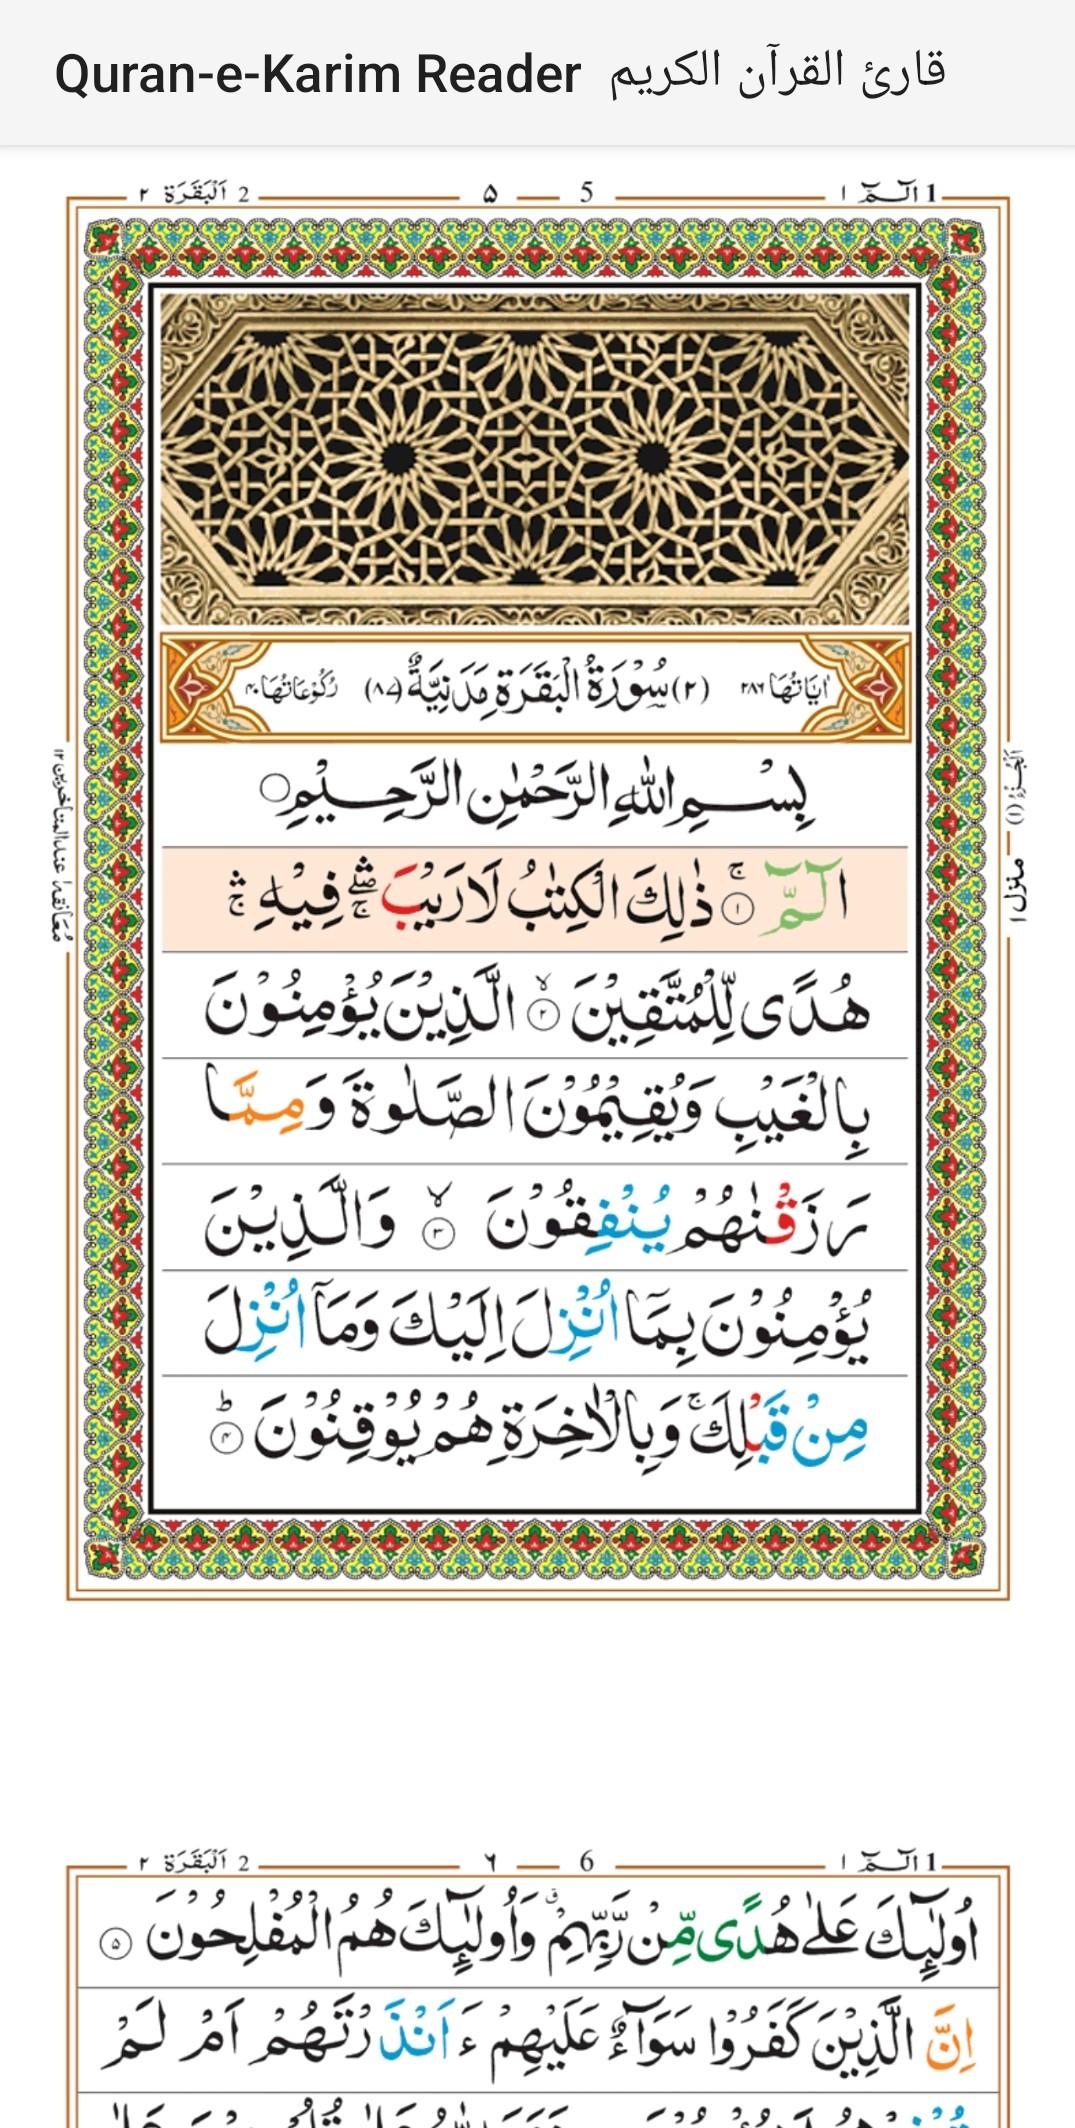 Quran-e-Karim Reader قارئ القرآن الكريم
1 الٓـمّٓ ١ 5 — ۵ 2 اَلْبَقَرَة ٢
اٰيَاتُهَا ٢٨٦ (٢) سُوْرَةُ الْبَقَرَةِ مَدَنِيَّةٌ (٨٧) رُكُوْعَاتُهَا ۴۰
بِسْمِ اللّٰهِ الرَّحْمٰنِ الرَّحِيْمِ
الٓمّٓ ۚ ١ ذٰلِكَ الْكِتٰبُ لَا رَيْبَ ۛۖۚ فِيْهِ ۛۚ
هُدًى لِّلْمُتَّقِيْنَ ۙ ٢ الَّذِيْنَ يُؤْمِنُوْنَ
بِالْغَيْبِ وَيُقِيْمُوْنَ الصَّلٰوةَ وَمِمَّا
رَزَقْنٰهُمْ يُنْفِقُوْنَ ۙ ٣ وَالَّذِيْنَ
يُؤْمِنُوْنَ بِمَآ اُنْزِلَ اِلَيْكَ وَمَآ اُنْزِلَ
مِنْ قَبْلِكَ ۚ وَبِالْاٰخِرَةِ هُمْ يُوْقِنُوْنَ ؕ ۴
اَلْجُزْءُ (١)
منزل ١
مُعَانقه ١ عند المتأخرين ١٢
1 الٓـمّٓ ١ 6 — ۶ 2 اَلْبَقَرَة ٢
اُولٰٓئِكَ عَلٰى هُدًى مِّنْ رَّبِّهِمْ ۗ وَاُولٰٓئِكَ هُمُ الْمُفْلِحُوْنَ ۵
اِنَّ الَّذِيْنَ كَفَرُوْا سَوَآءٌ عَلَيْهِمْ ءَاَنْذَرْتَهُمْ اَمْ لَمْ